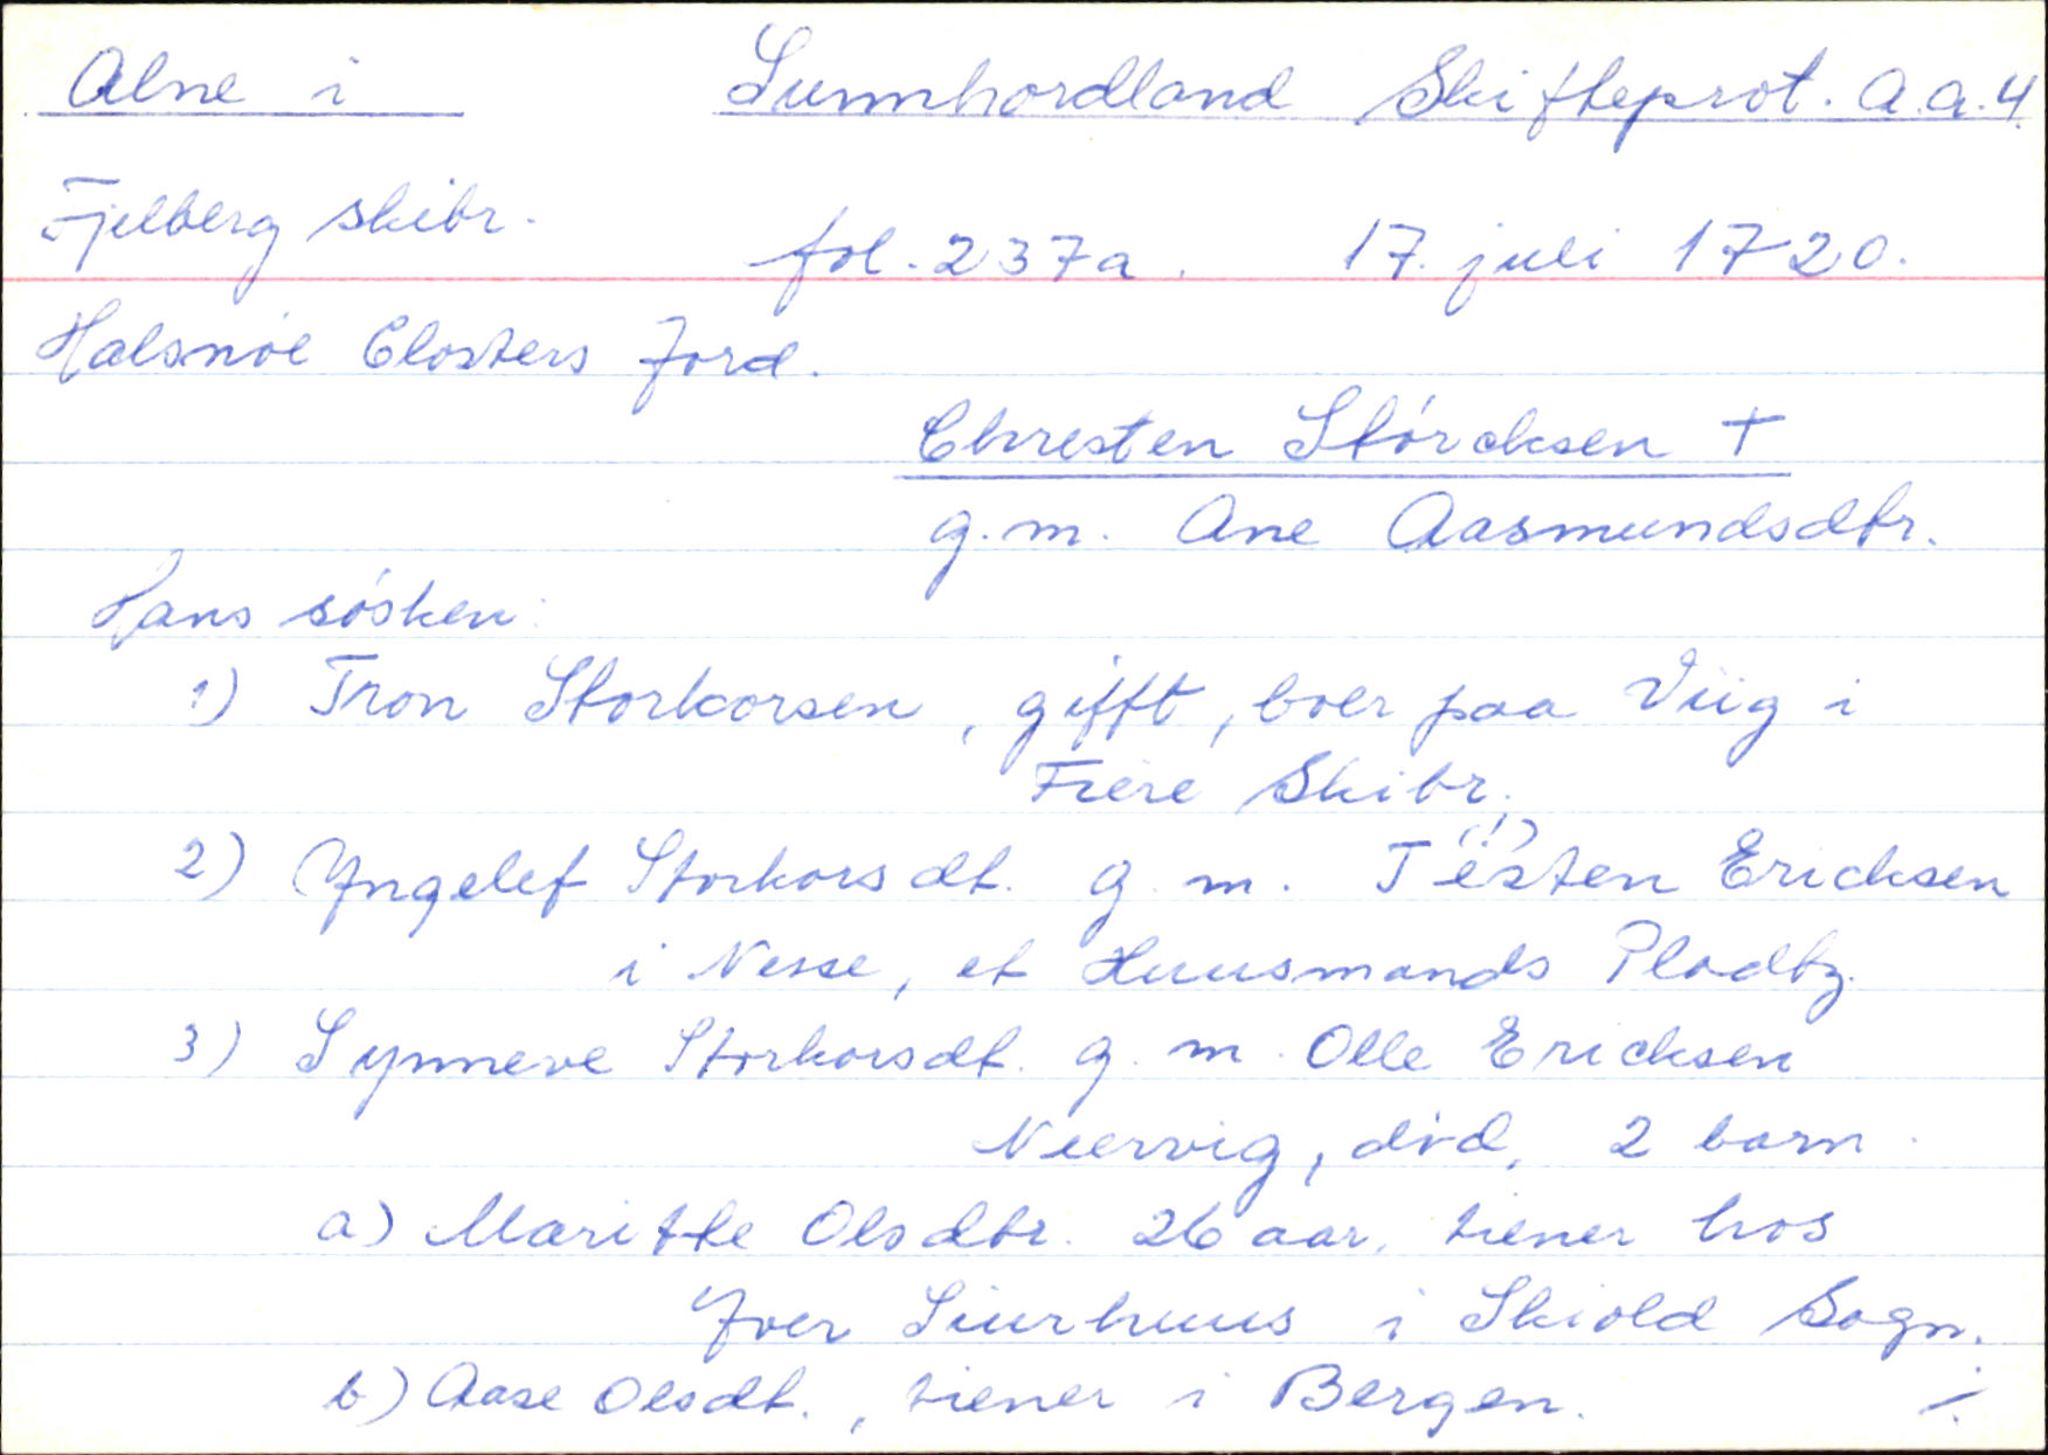 Alne i Sunnhordland Skifteprot. A.a.4.
Fjelberg skibr.
fol. 237a. 17. juli 1720.
Halsnöe Closters Jord.
Chresten Störcksen +
g.m. Ane Aasmundsdtr.
Hans sösken:
1) Tron Storkorsen, gifft, boer paa Viig i
Fiere Skibr.
2) Yngelef Storkorsdt. g.m. Tësten (!) Ericksen
i Nesse, et Huusmands Pladtz.
3) Synneve Storkorsdt. g.m. Olle Ericksen
Neervig, död, 2 barn.
a) Maritte Olsdtr. 26 aar, tiener hos
Iver Siurhuus i Skiold Sogn.
b) Aase Olsdt., tiener i Bergen. ./.